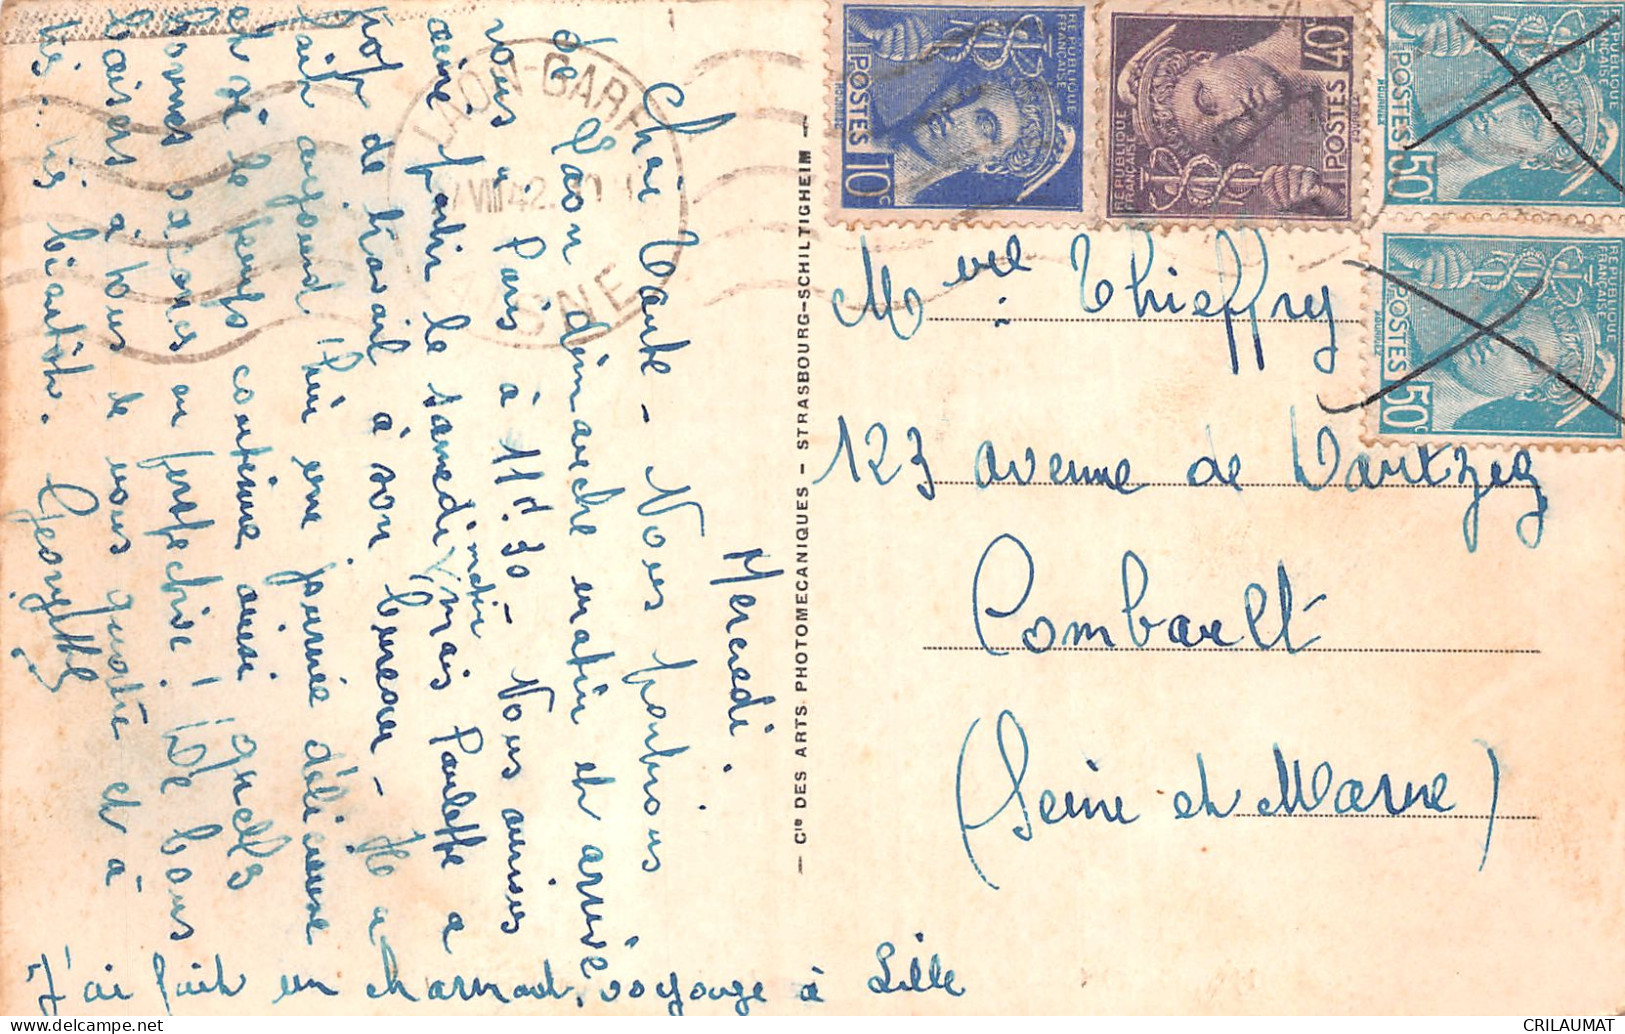 Mercredi.
Chère Tante - Nous partirons
de Laon dimanche matin et arrive
rons à Paris à 11h.30 - Nous aurions
aimé partir le samedi matin mais Paulette a
trop de travail à son bureau - Il a
fait aujourd'hui une journée délicieuse
et si le temps continue ainsi quelles
bonnes vacances en perspective ! De bons
baisers à tous de vous quatre et à
très.. très bientôt. Georgette
J'ai fait un charmant voyage à Lille
LAON-GARE
VIII 42
AISNE
— Cie DES ARTS PHOTOMECANIQUES - STRASBOURG-SCHILTIGHEIM —
REPUBLIQUE FRANÇAISE
POSTES 10c
REPUBLIQUE FRANÇAISE
POSTES 40c
REPUBLIQUE FRANÇAISE
POSTES 50c
REPUBLIQUE FRANÇAISE
POSTES 50c
Mme Thieffry
123 avenue de
Combault
(Seine et Marne)
CRILAUMAT